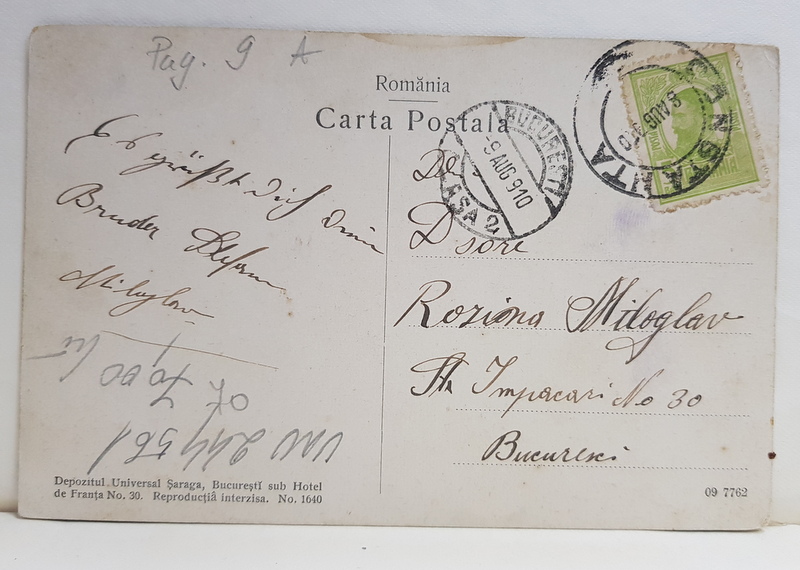 Pag. 9 A
România
Carta Postala
CONSTANTA
8 AUG 910
BUCURESTI
-9 AUG 910
Es grüßt dich dein
Bruder Stefan
Miloglav
D sore
Rozina Miloglav
Str Impacari No 30
Bucuresci
70,00 lei
ok
UNU 244 561
Depozitul Universal Şaraga, Bucureştĭ sub Hotel
de Franţa No. 30. Reproducţiă interzisa. No. 1640
09 7762